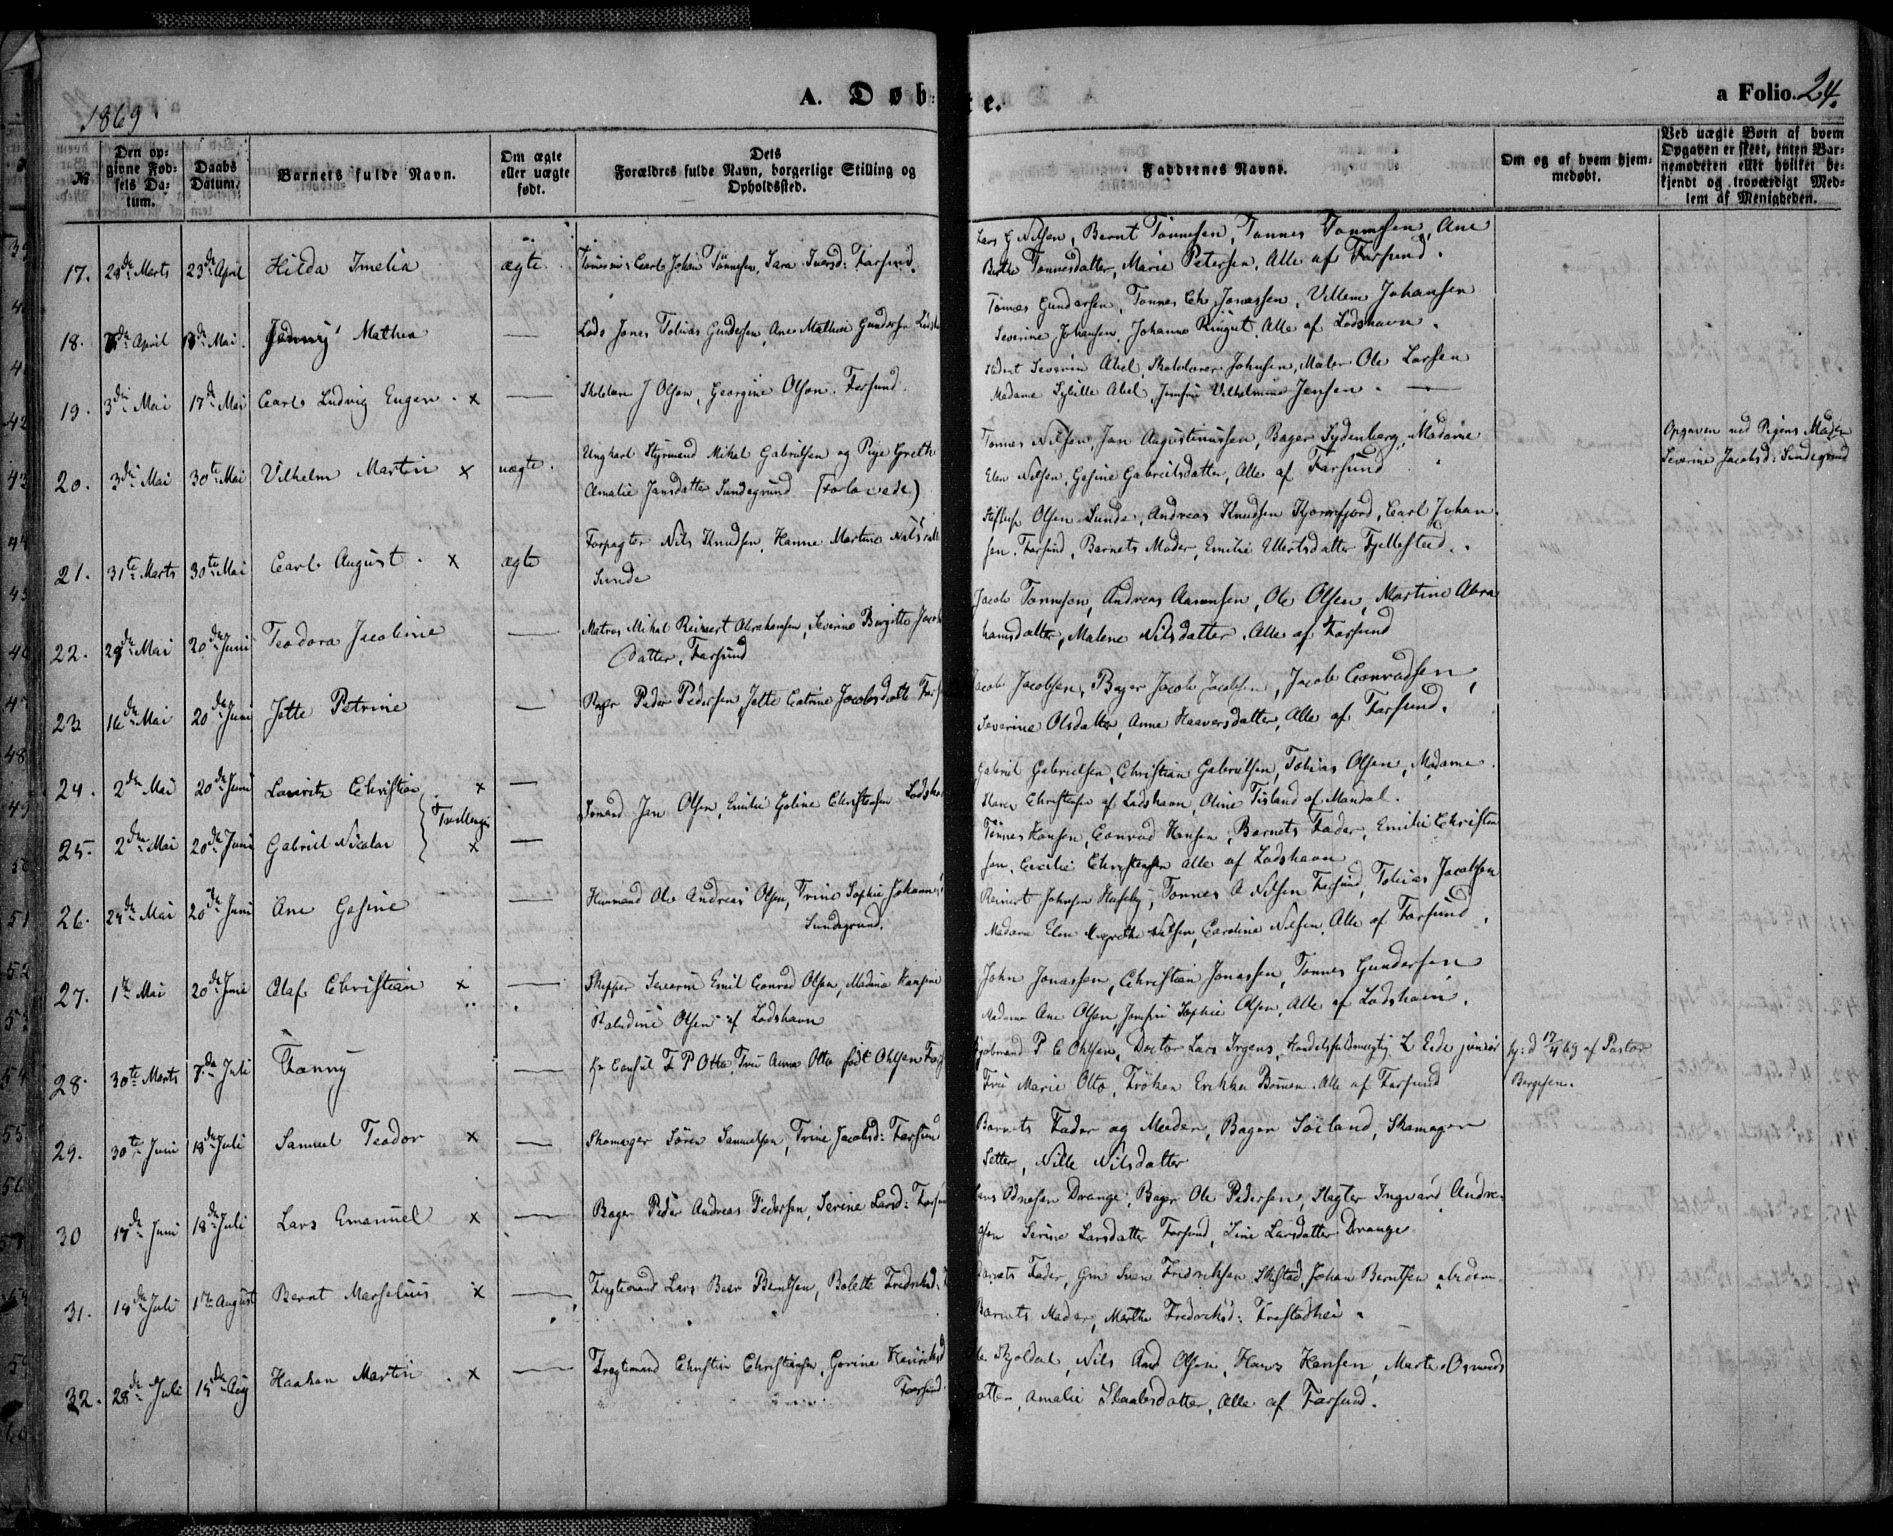 1869
A. Døb=
te.
a Folio. 24.
№
Den op=
givne Fød=
sels Da=
tum.
Daabs
Datum.
Barnets fulde Navn.
Om ægte
eller uægte
født.
Dets
Forældres fulde Navn, borgerlige Stilling og
Opholdssted.
Faddernes Navne.
Om og af hvem hjem=
medøbt.
Ved uægte Børn af hvem
Opgaven er skeet, enten Bar=
nemoderen eller hvilket be=
kjendt og troværdigt Med=
lem af Menigheden.
17. 28de Marts 23de April Hilda Imelia ægte Carl Johan Tønnesen, Sara Iversd: Farsund.
Lars G Nilsen, Bernt Tønnesen, Tønnes Tønnesen, Ane
Berthe Tønnesdatter, Marie Petersen, Alle af Farsund.
18. April Mai. Jenny Mathea — Lods Jonas Tobias Gundersen, Ane Mathea Gundersen
Tønnes Gundersen, Tønnes Chr Jonassen, Villem Johansen
Severine Johansen, Johanne Ringut, Alle af Lodshavn.
19. 3die Mai 17de Mai Carl Ludvig Eugen. x — J Olsen, Georgine Olsen. Farsund
Severin Abel, Skolelærer Johnsen, Maler Ole Larsen
Madame Sybille Abel, Jomfru Vilhelmine Jensen. —
20. 3die Mai 30te Mai Vilhelm Martin x uægte. Ungkarl Styrmand Mikal Gabrielsen og Pige Greth
Amalie Jansdatter Sundegrund (Forlovede)
Tønnes Nilsen, Jan Augustinussen, Bager Sydenberg, Madame
Elen Nilsen, Gesine Gabrielsdatter, Alle af Farsund
Opgaven ved Pigens Moder
Severine Jacobsd: Sundegrund
21. 31te Marts 30te Mai Carl August. x ægte Forpagter Nils Knudsen, Hanne Martine
Sunde
Olsen Sunde, Andreas Knudsen, Carl Johan
sen. Farsund, Barnets Moder, Emilie Ellertsdatter Fjellestad.
22. 29de Mai 20de Juni Teodora Jacobine — Matros Mikal Reinert Abrahamsen, Severine Birgitte Jacob
datter, Farsund
Jacob Tønnesen, Andreas Aanensen, Ole Olsen, Martine Abra
hamsdatter, Malene Nilsdatter. Alle af Farsund
23. 16de Mai 20de Juni Jette Petrine — Peder Pedersen, Jette Catrine Jacobsdatter
Jacob Jacobsen, Bager Jacob Jacobsen, Jacob Conradsen,
Severine Olsdatter, Anne Haaversdatter, Alle af Farsund.
24. 2den Mai 20de Juni Lauritz Christian x —
25. 2den Mai 20de Juni Gabriel Nicolai x —
Tvillinger
Jan Olsen, Emilie Goline Christensen
Gabriel Gabrielsen, Christian Gabrielsen, Tobias Olsen, Madame
Maren Christensen af Lodshavn, Oline Tisland af Mandal.
Tønnes Hansen, Conrad Hansen, Barnets Fader, Emilie Christen
sen, Cecilie Christensen alle af Lodshavn
26. 24de Mai 20de Juni Ane Gesine — Ole Andreas Olsen, Trine Sophie
Sundegrund.
Reinert Johnsen Huseby, Tønnes A Nilsen Farsund, Tobias Jacobsen
Madame Elen Margrethe Nilsen, Caroline Nilsen, Alle af Farsund.
27. 1te Mai 20de Juni Olaf Christian x — Skipper Severin Emil Conrad Olsen, Madame Hansine
Paludine Olsen af Lodshavn
John Jonassen, Christian Jonassen, Tønnes Gundersen
Madame Ane Olsen, Jomfru Sophie Olsen, Alle af Lodshavn.
28. 30te Marts 7de Juli Fanny — Hr Consul P Otto Fru Anna Otto født Ohlsen
P C Ohlsen, Doctor Lars Irgens, Handelsfuldmægtig L Eide junior
Fru Marie Otto, Frøken Erikka Boman. Alle af Farsund
hj: d 17/4 69 af Pastor
Borgesen.
29. 30te Juni 18de Juli Samuel Teodor x — Skomager Søren Samuelsen, Trine Jacobsd: Farsund
Barnets Fader og Moder, Bager Søiland, Skomager
Setter, Nille Nilsdatter
30 17de Juni 18de Juli Lars Emanuel x — Bager Peder Andreas Pedersen, Serine Larsd: Farsund
Drange, Bager Ole Pedersen, Slagter Ingvard Andre=
sen Serine Larsdatter Farsund, Line Larsdatter Drange
31. 14de Juli 1te August Bernt Marselius x — Fragtemand Lars Berntsen, Bolette Fredriksd:
Barnets Fader, Sven Fredriksen, Johan Berntsen
Barnets Moder, Marthe Fredriksd:
32. 28de Juli 15de Aug Haakon Martin x — Fragtemand Christian Christiansen, Gorine
Farsund
Nils And Olsen, Hans Hansen, Marte
Amalie, Alle af Farsund.